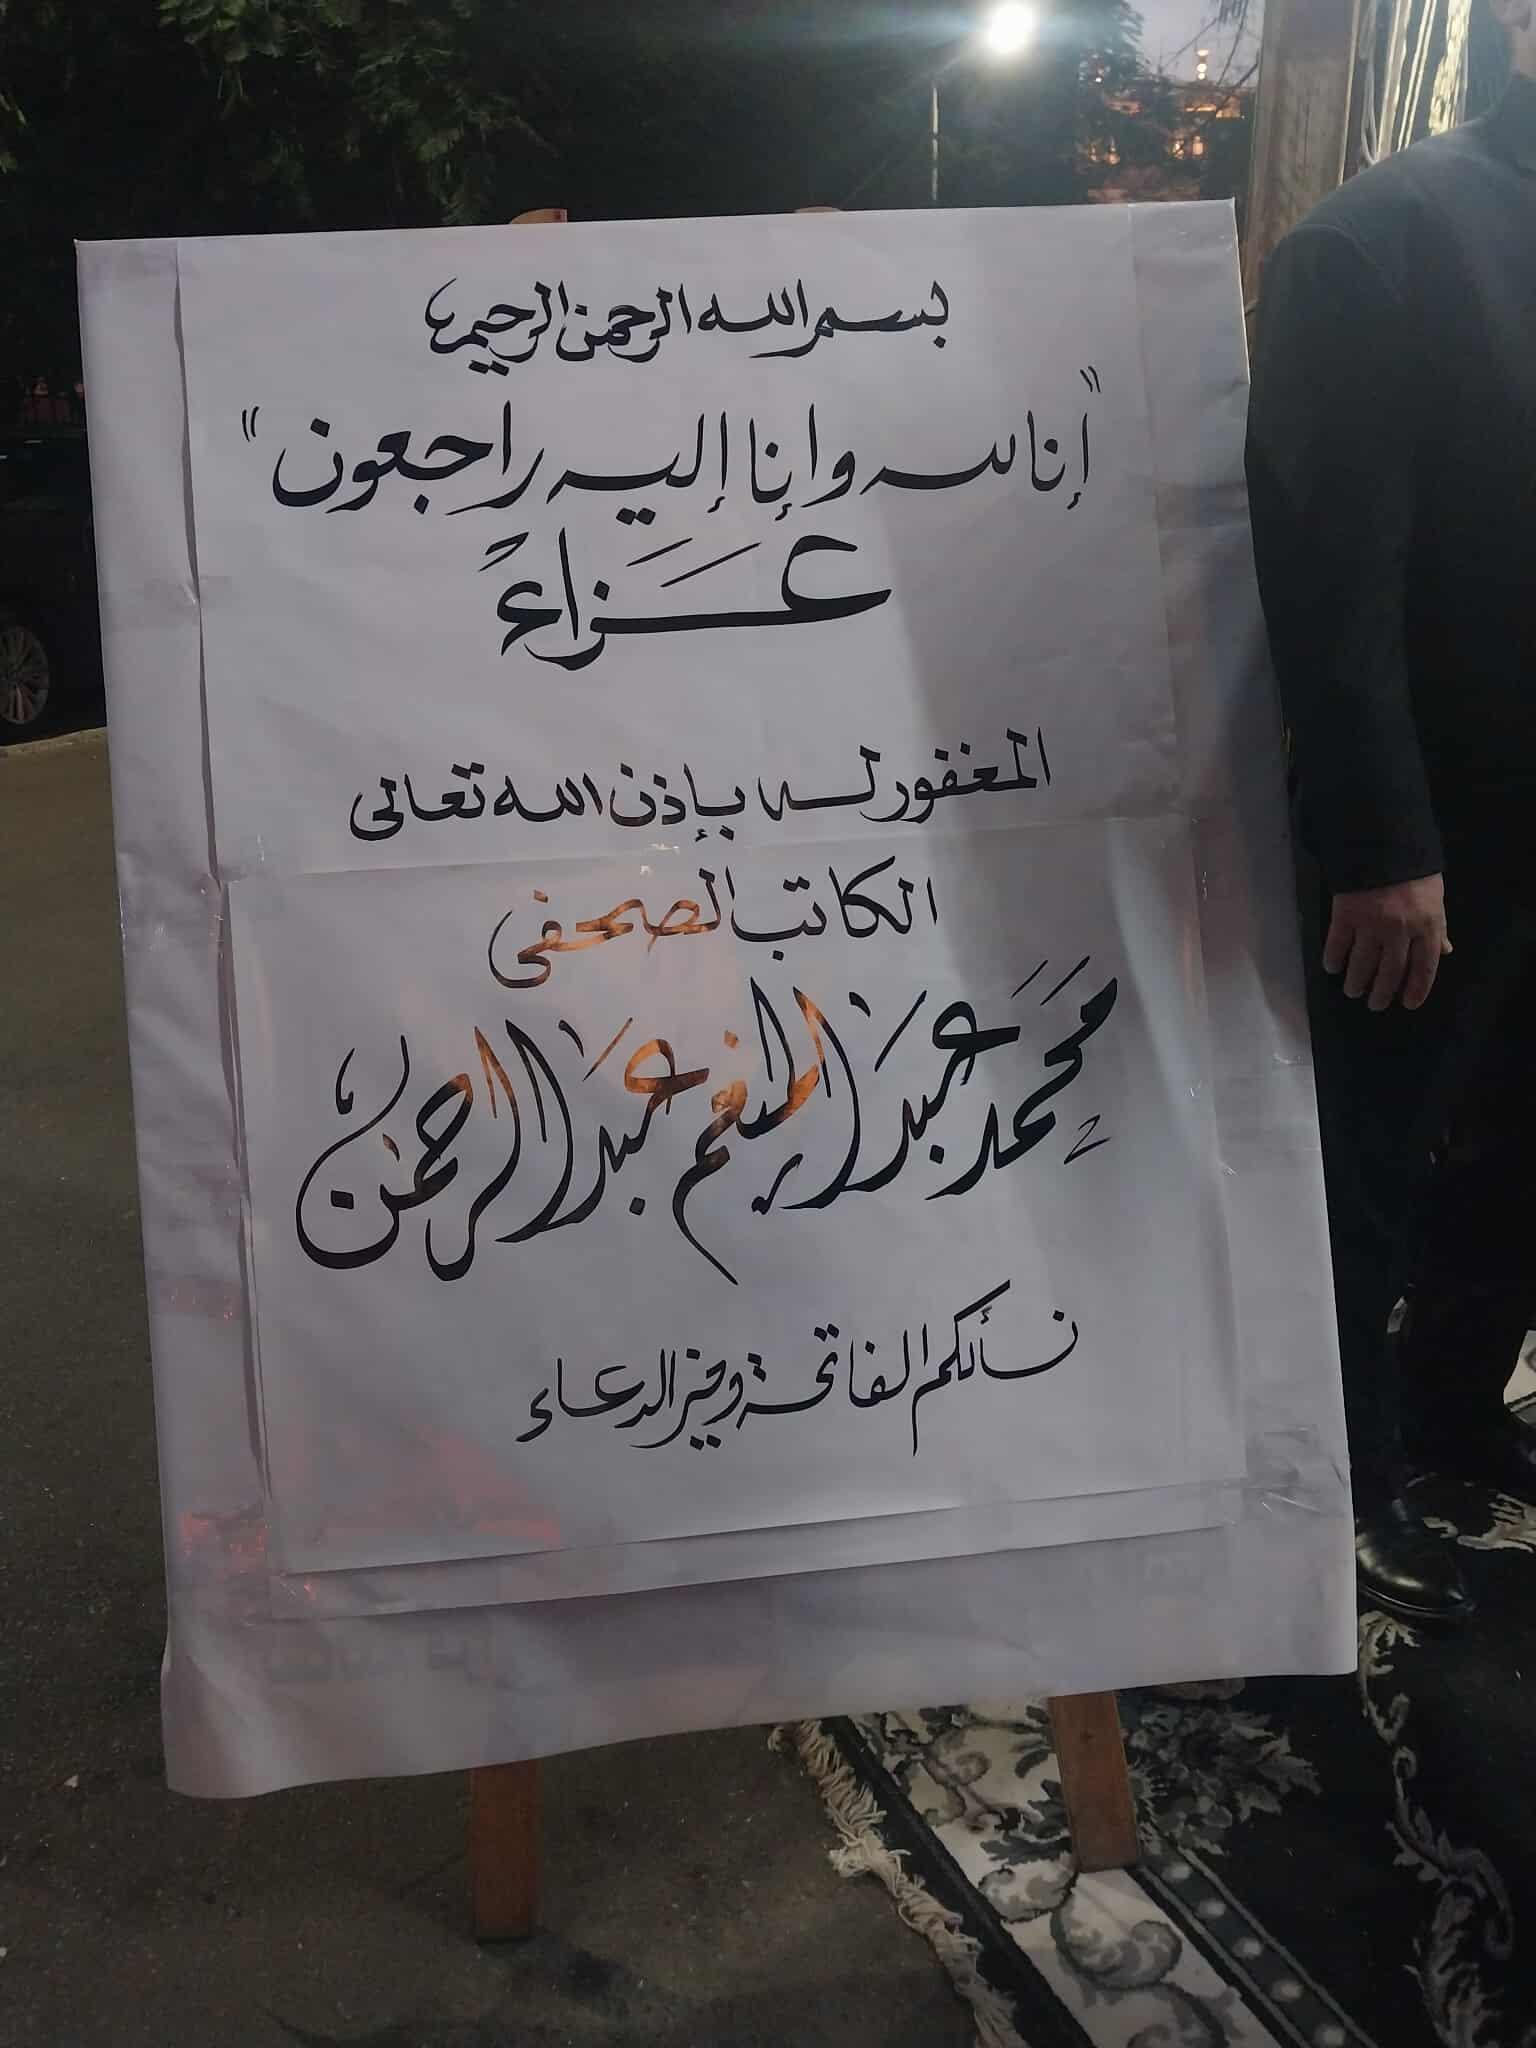 بسم الله الرحمن الرحيم
"إنا لله وإنا إليه راجعون"
عَـزَاءً
المغفور له بإذن الله تعالى
الكاتب الصحفى
محمد عبد المنعم عبد الرحمن
نسألكم الفاتحة وخير الدعاء